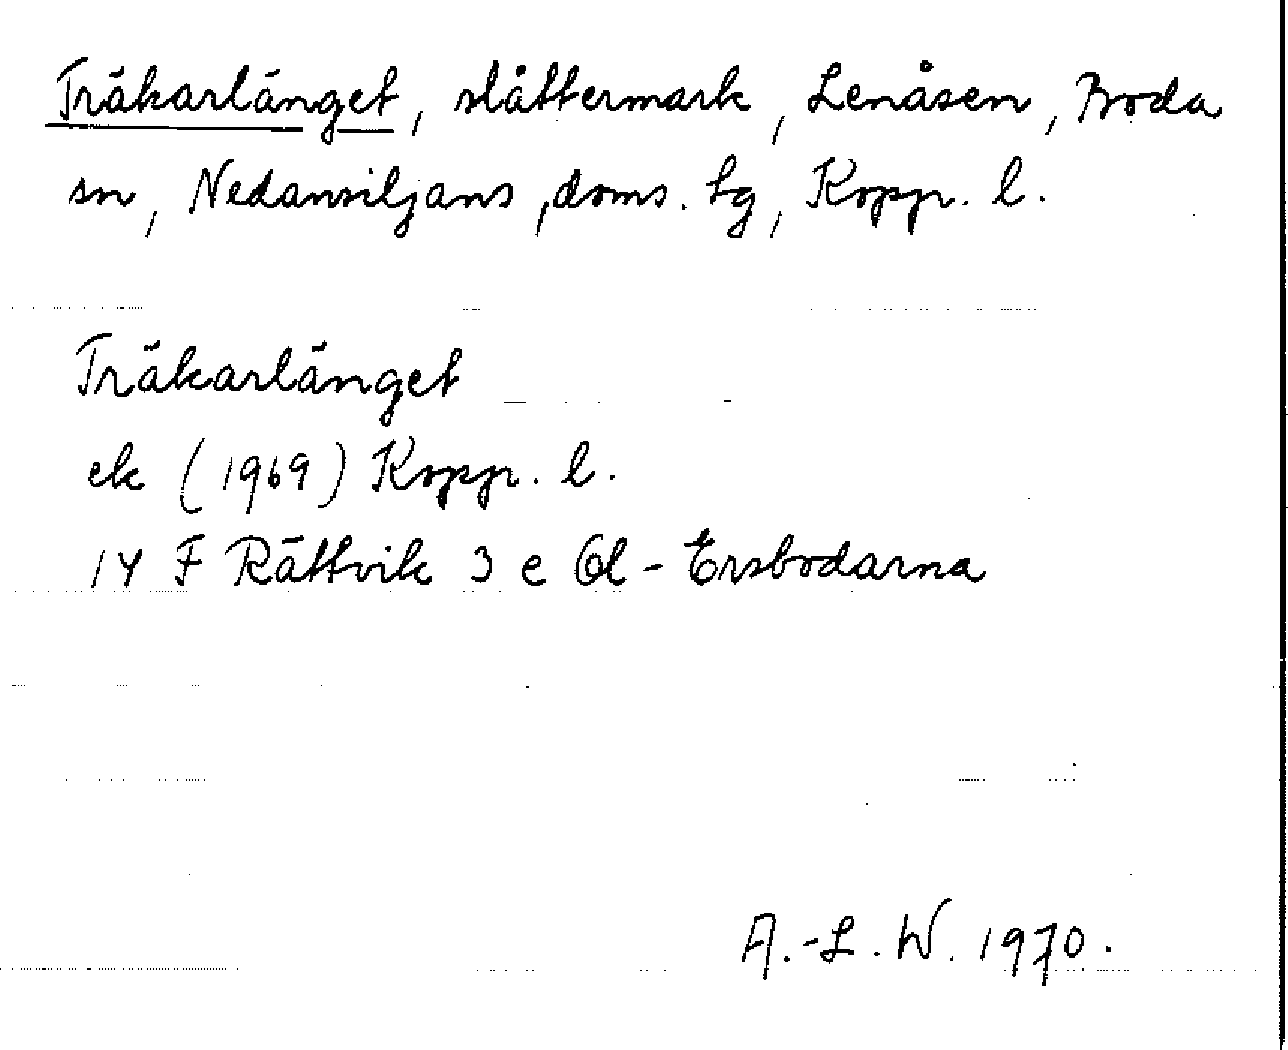 Träkarlänget, slåttermark, Lenåsen, Boda
sn, Nedansiljans, doms. tg, Kopp. l.
Träkarlänget
ek (1969) Kopp. l.
14 F Rättvik 3 e Ol-Ersbodarna
A.-L. W. 1970.